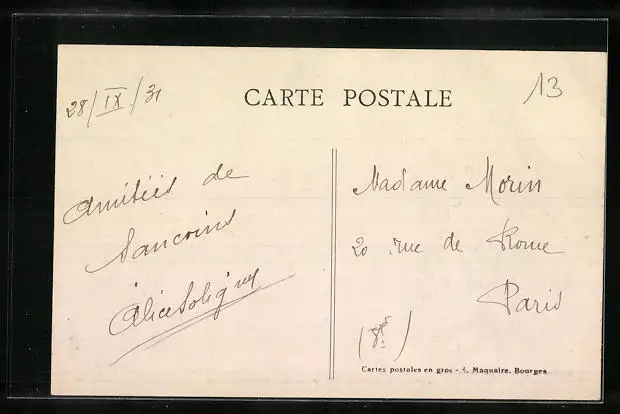 28/IX/31
CARTE POSTALE
13
Amitiés de
Sancoins
Alice Soligny
Madame Morin
20 rue de Rome
Paris
(8e)
Cartes postales en gros - E. Maquaire, Bourges